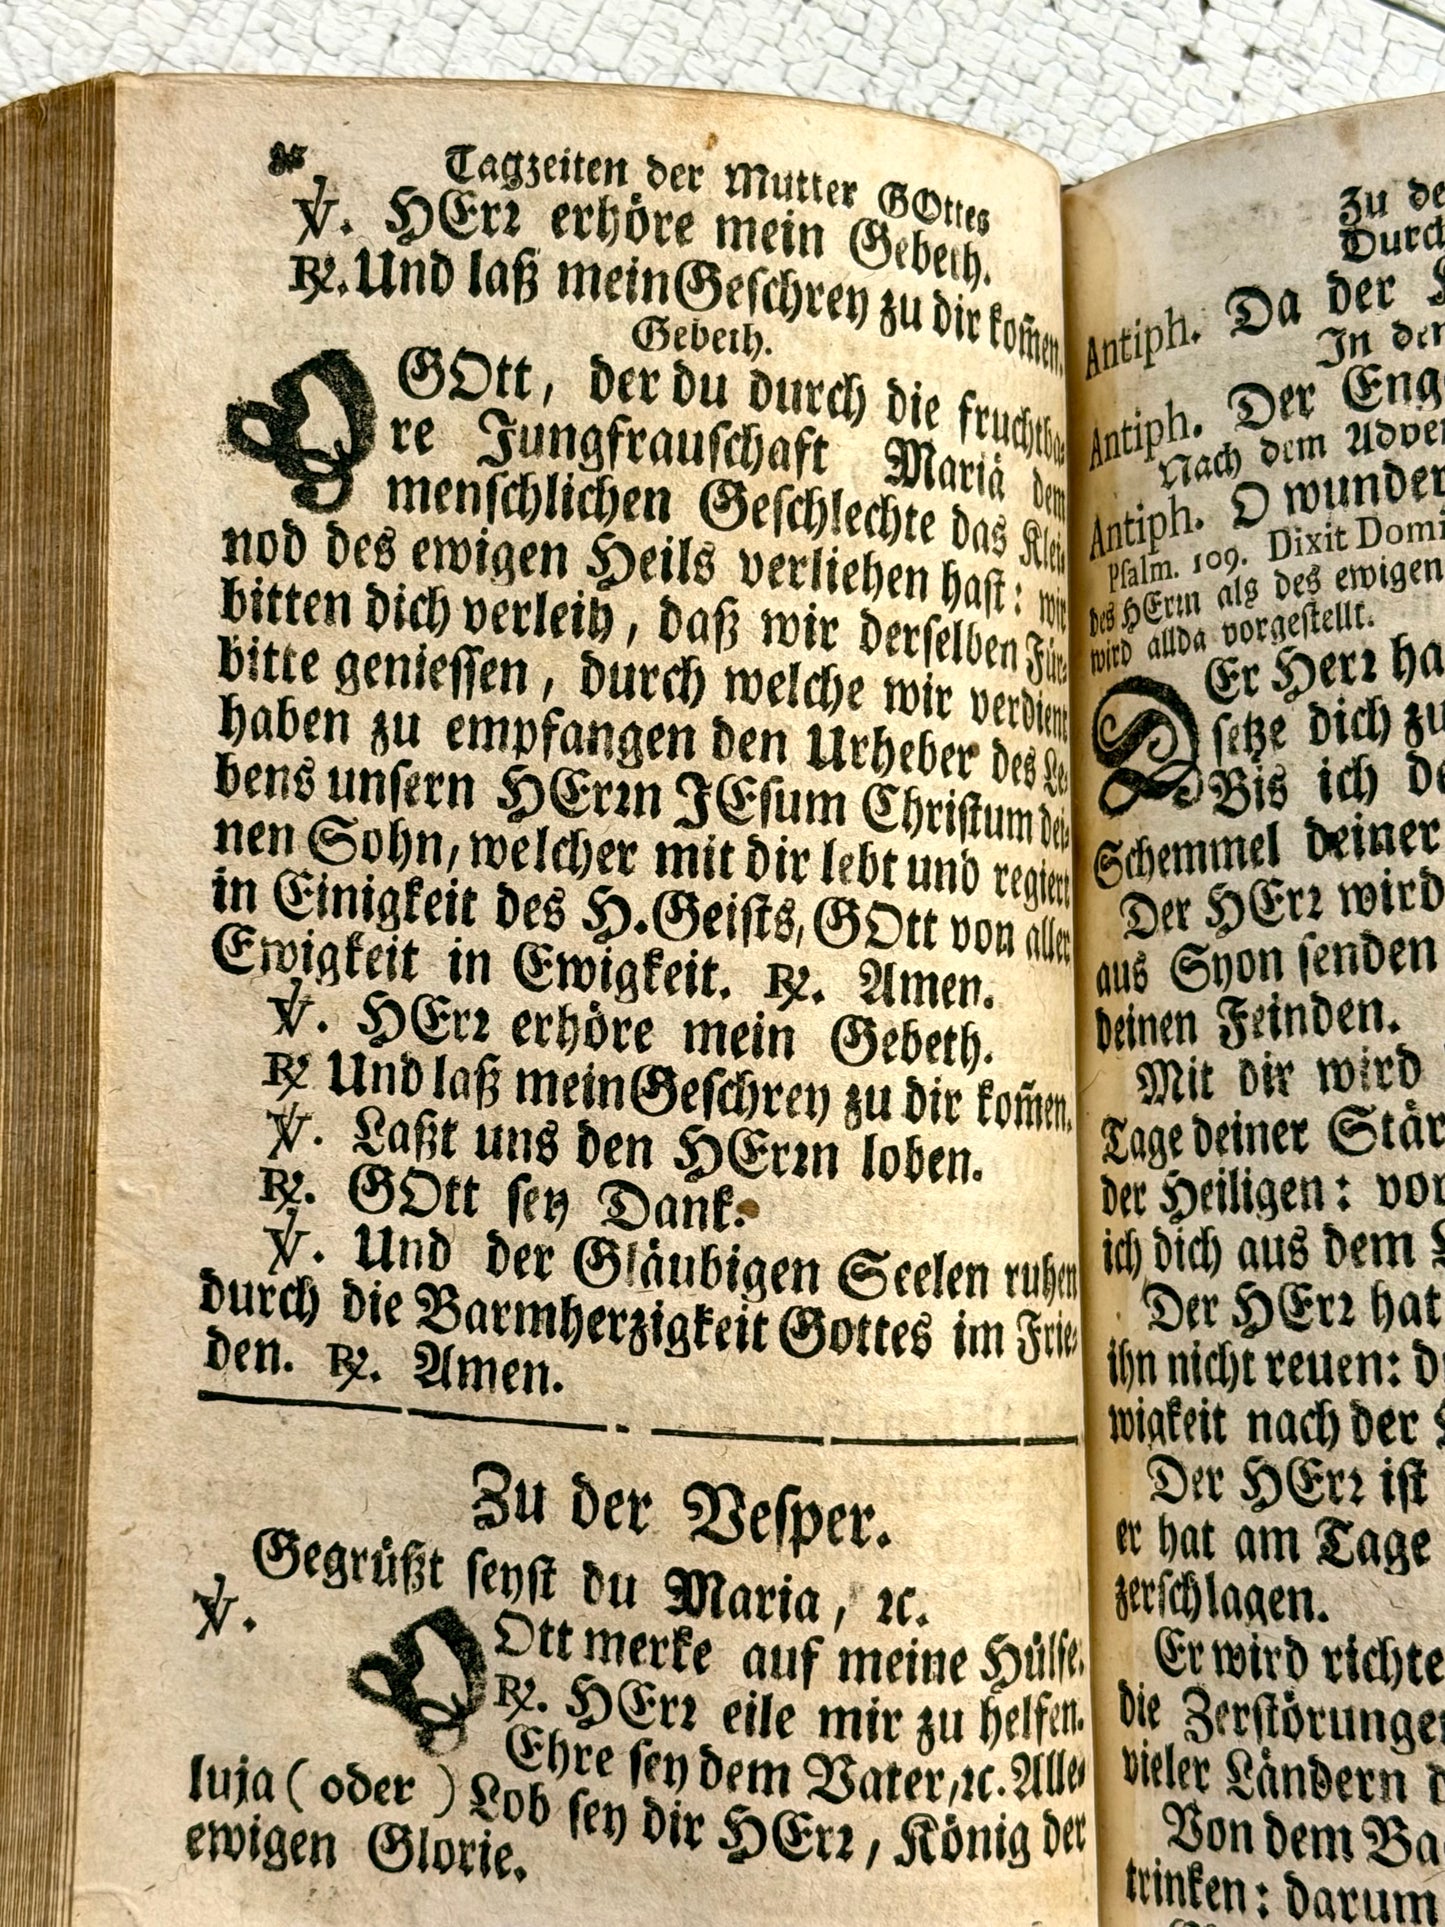 Tagzeiten der Mutter GOttes
℣. HErꝛ erhöre mein Gebeth.
℟. Und laß mein Geschrey zu dir kom̅en.
Gebeth.
O GOtt, der du durch die fruchtba-
re Jungfrauschaft Mariä dem
menschlichen Geschlechte das Klei-
nod des ewigen Heils verliehen hast: wir
bitten dich verleih, daß wir derselben Für-
bitte geniessen, durch welche wir verdient
haben zu empfangen den Urheber des Le-
bens unsern HErꝛn JEsum Christum dei-
nen Sohn, welcher mit dir lebt und regiert
in Einigkeit des H. Geists, GOtt von aller
Ewigkeit in Ewigkeit. ℟. Amen.
℣. HErꝛ erhöre mein Gebeth.
℟ Und laß mein Geschrey zu dir kom̅en.
℣. Laßt uns den HErꝛn loben.
℟. GOtt sey Dank.
℣. Und der Gläubigen Seelen ruhen
durch die Barmherzigkeit Gottes im Frie-
den. ℟. Amen.
Zu der Vesper.
Gegrüßt seyst du Maria, ꝛc.
℣.
GOtt merke auf meine Hülfe.
℟. HErꝛ eile mir zu helfen.
Ehre sey dem Vater, ꝛc. Alle-
luja ( oder ) Lob sey dir HErꝛ, König der
ewigen Glorie.
Zu de
Durch
Antiph. Da der
In der
Antiph. Der Eng
Nach dem Adven
Antiph. O wunder
Psalm. 109. Dixit Domi
des HErꝛn als des ewigen
wird allda vorgestellt.
DEr Herꝛ ha
setze dich zu
Bis ich de
Schemmel deiner
Der HErꝛ wird
aus Syon senden
deinen Feinden.
Mit dir wird
Tage deiner Stär
der Heiligen: vor
ich dich aus dem
Der HErꝛ hat
ihn nicht reuen: d
wigkeit nach der
Der HErꝛ ist
er hat am Tage
zerschlagen.
Er wird richte
die Zerstörunge
vieler Ländern
Von dem Ba
trinken: darum